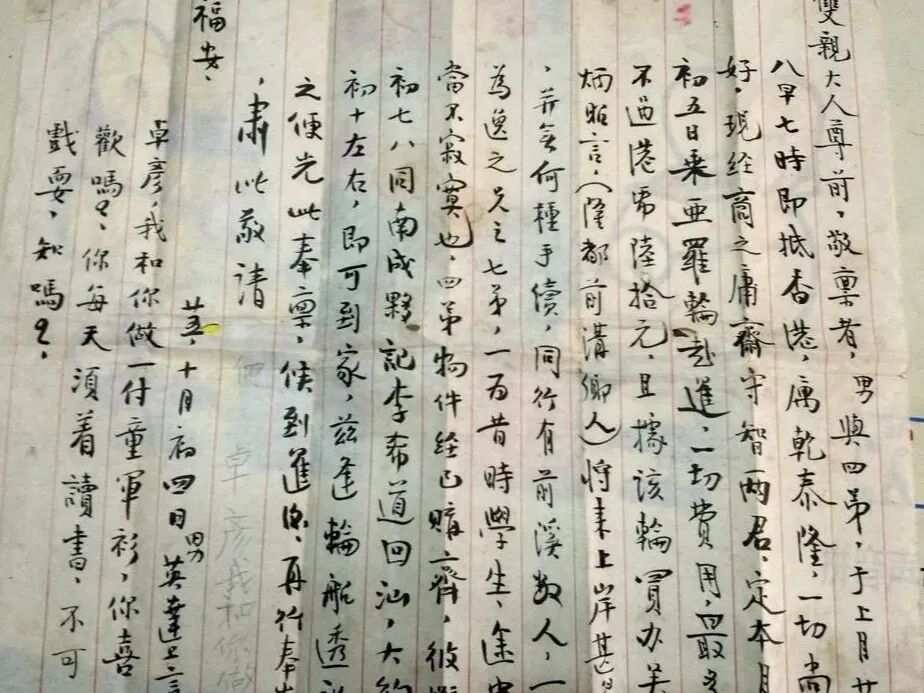 雙親大人尊前，敬禀者，男與四弟，于上月廿
八早七時即抵香港，寓乾泰隆，一切尚
好，現经商之庸齋守智两君，定本月
初五日乘亜羅輪赴暹，一切費用，最多
不過港币陸拾元，且據该輪買办吴
炳昭言，（隆都前溝鄉人）将来上岸甚
，并無何種手續，同行有前溪数人，一
為逸之兄之七弟，一为昔時學生，途中
當不寂寞也，四弟物件经已購齊，彼
初七八同南成夥記李希道回汕，大約
初十左右，即可到家，兹逢輪航透
之便先此奉禀，候到暹后，再行奉
，肃此敬请
福安，
十月初四日 男英達上
卓彦，我和你做一付童軍衫，你喜
歡嗎？你每天須着讀書，不可
戲耍，知嗎？
卓彦我和你做